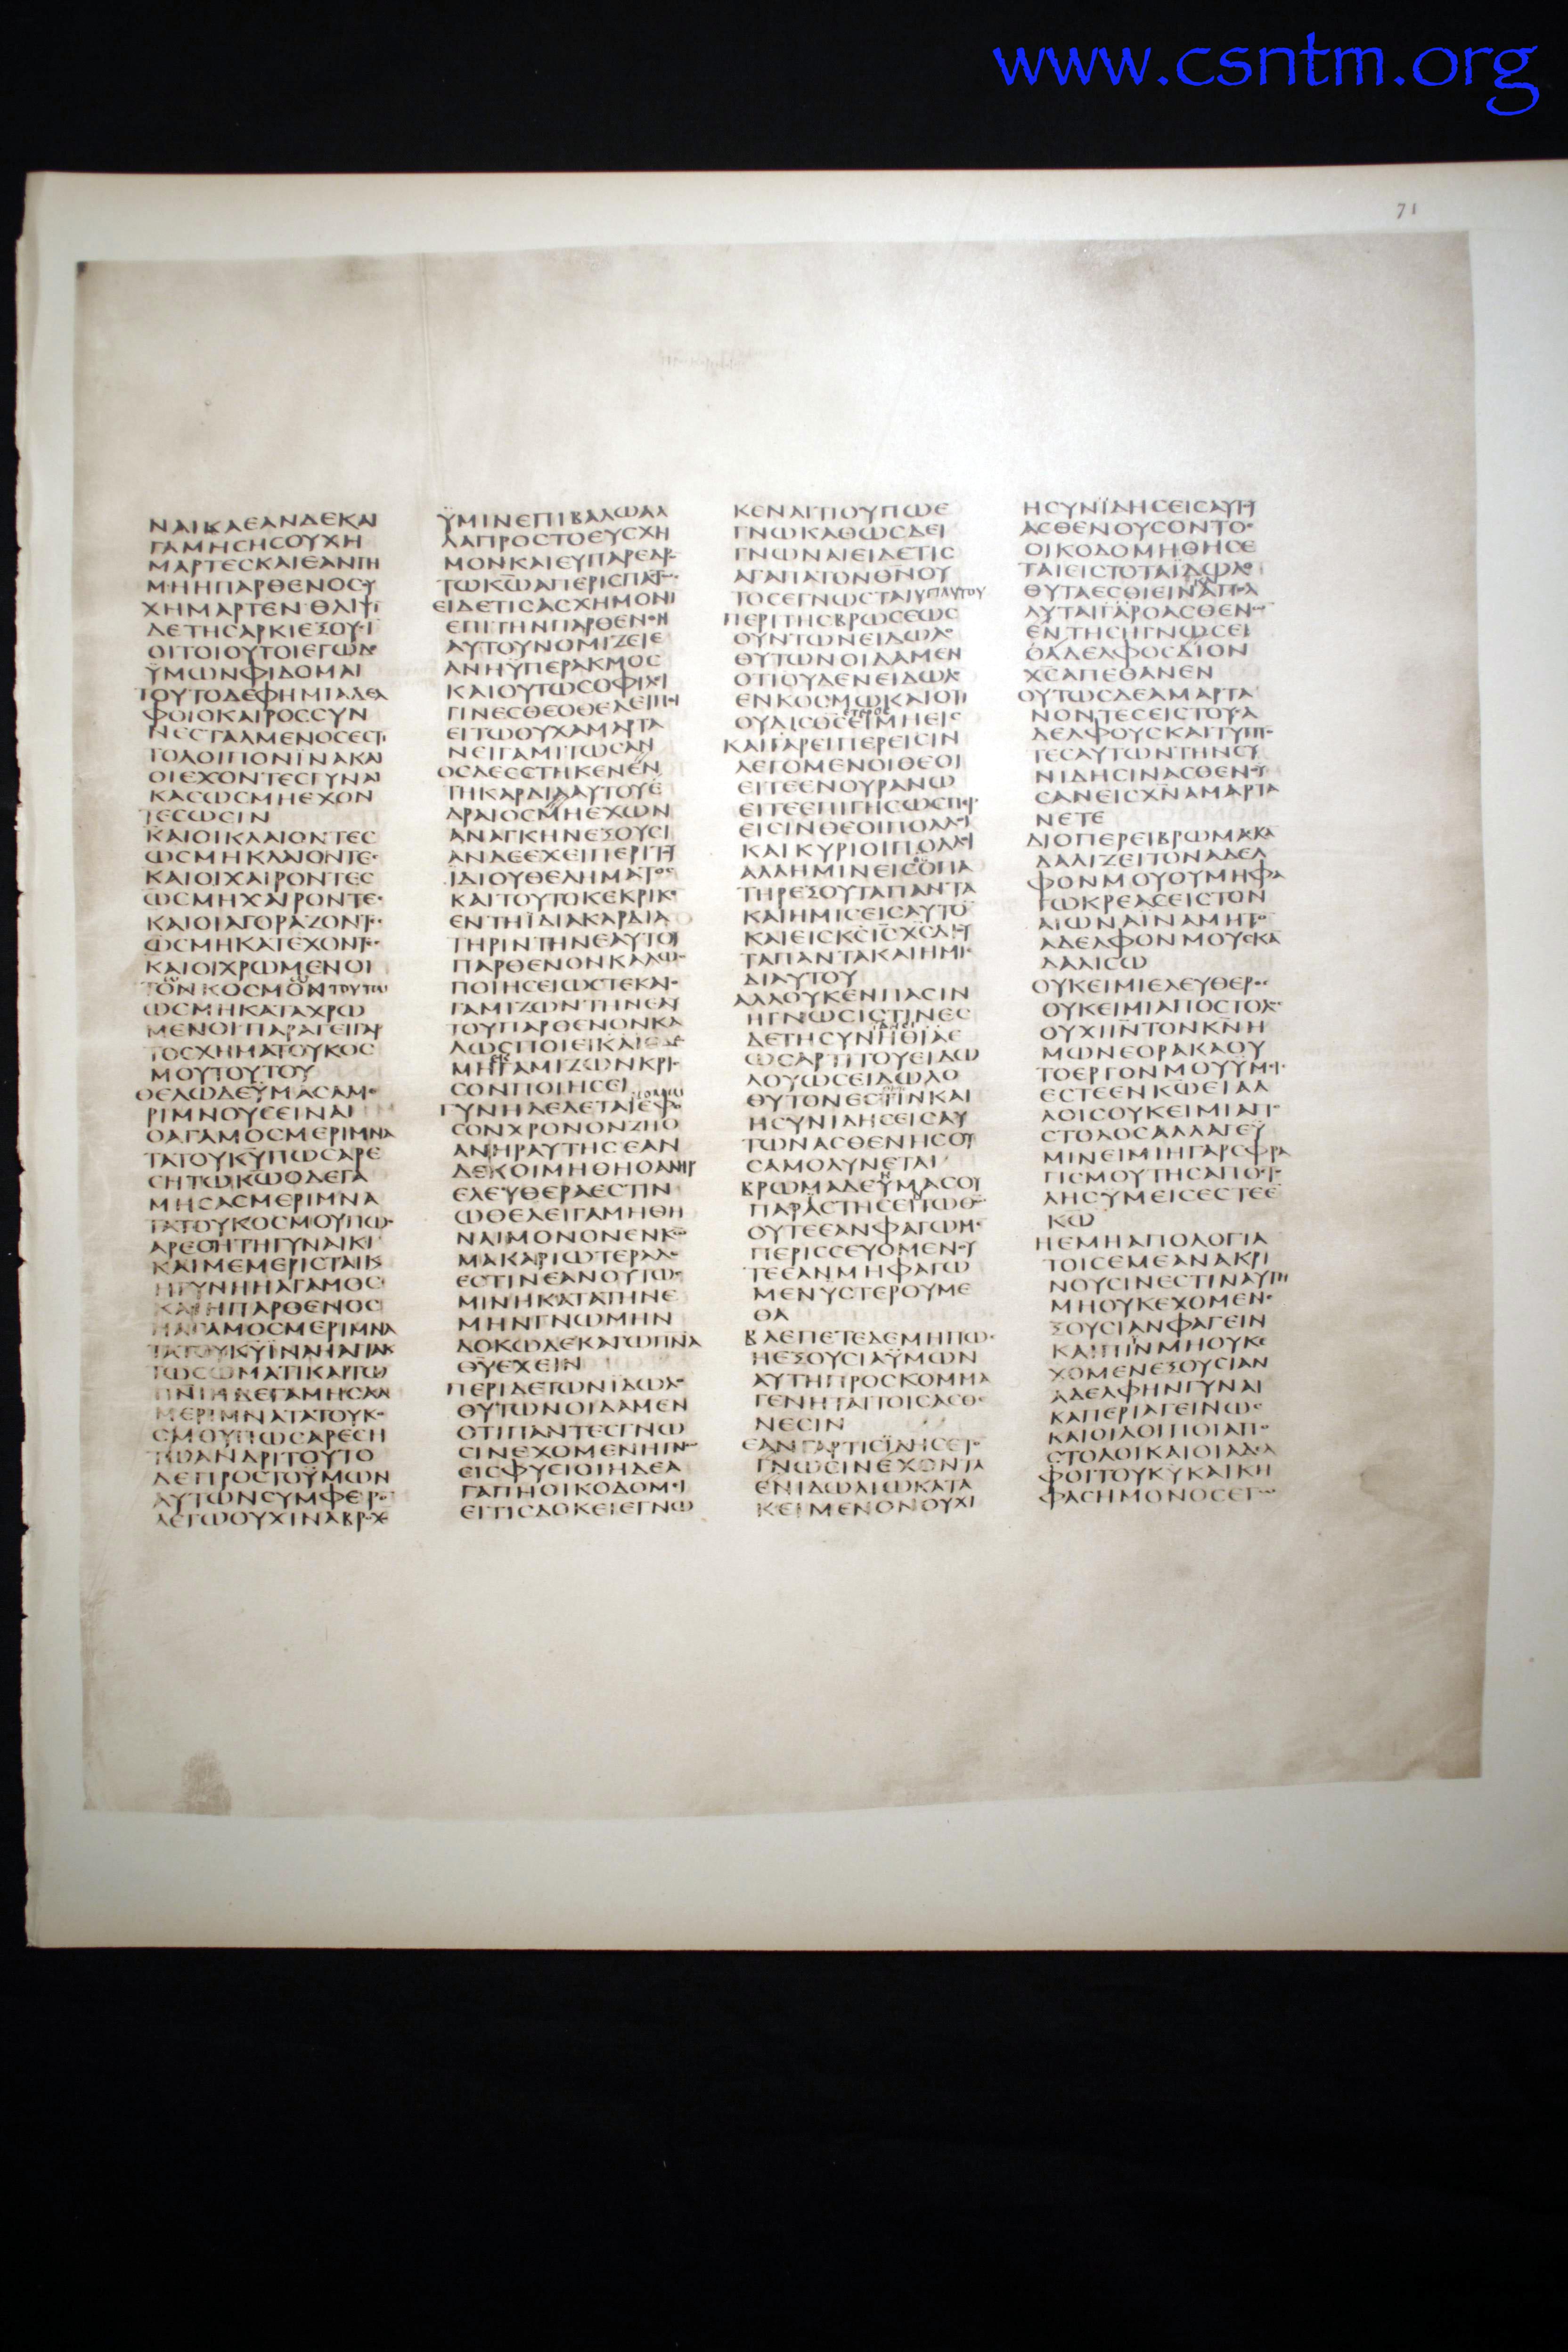 www.csntm.org
71
ΝΑΙΚΑΕΑΝΔΕΚΑΙ
ΓΑΜΗϹΗϹΟΥΧΗ
ΜΑΡΤΕϹΚΑΙΕΑΝΓΗ
ΜΗΗΠΑΡΘΕΝΟϹΟΥ
ΧΗΜΑΡΤΕΝΘΛΙΨΙ
ΔΕΤΗϹΑΡΚΙΕΞΟΥϹΙ
ΟΙΤΟΙΟΥΤΟΙΕΓΩΔΕ
ΫΜΩΝΦΙΔΟΜΑΙ
ΤΟΥΤΟΔΕΦΗΜΙΑΔΕΛ
ΦΟΙΟΚΑΙΡΟϹϹΥΝ
ΕϹΤΑΛΜΕΝΟϹΕϹΤΙ
ΤΟΛΟΙΠΟΝΪΝΑΚΑΙ
ΟΙΕΧΟΝΤΕϹΓΥΝΑΙ
ΚΑϹΩϹΜΗΕΧΟΝ
ΤΕϹΩϹΙΝ
ΚΑΙΟΙΚΛΑΙΟΝΤΕϹ
ΩϹΜΗΚΛΑΙΟΝΤΕϹ
ΚΑΙΟΙΧΑΙΡΟΝΤΕϹ
ΩϹΜΗΧΑΙΡΟΝΤΕϹ
ΚΑΙΟΙΑΓΟΡΑΖΟΝΤΕϹ
ΩϹΜΗΚΑΤΕΧΟΝΤΕϹ
ΚΑΙΟΙΧΡΩΜΕΝΟΙ
ΤΟΝΚΟϹΜΟΝΤΟΥΤΟΝ
ΩϹΜΗΚΑΤΑΧΡΩ
ΜΕΝΟΙΠΑΡΑΓΕΙΓΑΡ
ΤΟϹΧΗΜΑΤΟΥΚΟϹ
ΜΟΥΤΟΥΤΟΥ
ΘΕΛΩΔΕΫΜΑϹΑΜΕ
ΡΙΜΝΟΥϹΕΙΝΑΙ
ΟΑΓΑΜΟϹΜΕΡΙΜΝΑ
ΤΑΤΟΥΚΥΠΩϹΑΡΕ
ϹΗΤΩΚΩΟΔΕΓΑ
ΜΗϹΑϹΜΕΡΙΜΝΑ
ΤΑΤΟΥΚΟϹΜΟΥΠΩϹ
ΑΡΕϹΗΤΗΓΥΝΑΙΚΙ
ΚΑΙΜΕΜΕΡΙϹΤΑΙΚΑΙ
ΗΓΥΝΗΗΑΓΑΜΟϹ
ΚΑΙΗΠΑΡΘΕΝΟϹ
ΗΑΓΑΜΟϹΜΕΡΙΜΝΑ
ΤΑΤΟΥΚΥΪΝΑΗΑΓΙΑΚΑΙ
ΤΩϹΩΜΑΤΙΚΑΙΤΩ
ΠΝΙΗΔΕΓΑΜΗϹΑϹΑ
ΜΕΡΙΜΝΑΤΑΤΟΥΚΟ
ϹΜΟΥΠΩϹΑΡΕϹΗ
ΤΩΑΝΔΡΙΤΟΥΤΟ
ΔΕΠΡΟϹΤΟΫΜΩΝ
ΑΥΤΩΝϹΥΜΦΕΡΟΝ
ΛΕΓΩΟΥΧΙΝΑΒΡΟΧΟ
ΫΜΙΝΕΠΙΒΑΛΩΑΛ
ΛΑΠΡΟϹΤΟΕΥϹΧΗ
ΜΟΝΚΑΙΕΥΠΑΡΕΔΡΟ
ΤΩΚΩΑΠΕΡΙϹΠΑΣΤΩϹ
ΕΙΔΕΤΙϹΑϹΧΗΜΟΝΙ
ΕΠΙΤΗΝΠΑΡΘΕΝΟΝ
ΑΥΤΟΥΝΟΜΙΖΕΙΕ
ΑΝΗΫΠΕΡΑΚΜΟϹ
ΚΑΙΟΥΤΩϹΟΦΙΛΙ
ΓΙΝΕϹΘΕΟΘΕΛΕΙΠΟΙ
ΕΙΤΩΟΥΧΑΜΑΡΤΑ
ΝΕΙΓΑΜΙΤΩϹΑΝ
ΟϹΔΕΕϹΤΗΚΕΝΕΝ
ΤΗΚΑΡΔΙΑΑΥΤΟΥΕ
ΔΡΑΙΟϹΜΗΕΧΩΝ
ΑΝΑΓΚΗΝΕΞΟΥϹΙ
ΑΝΔΕΕΧΕΙΠΕΡΙΤΟΥ
ΙΔΙΟΥΘΕΛΗΜΑΤΟϹ
ΚΑΙΤΟΥΤΟΚΕΚΡΙΚΕΝ
ΕΝΤΗΪΔΙΑΚΑΡΔΙΑ
ΤΗΡΙΝΤΗΝΕΑΥΤΟΥ
ΠΑΡΘΕΝΟΝΚΑΛΩϹ
ΠΟΙΗϹΕΙΩϹΤΕΚΑΙΟ
ΓΑΜΙΖΩΝΤΗΝΕΑΥ
ΤΟΥΠΑΡΘΕΝΟΝΚΑ
ΛΩϹΠΟΙΕΙΚΑΙΟ
ΜΗΓΑΜΙΖΩΝΚΡΙϹ
ϹΟΝΠΟΙΗϹΕΙ
ΓΥΝΗΔΕΔΕΤΑΙΕΦΟ
ϹΟΝΧΡΟΝΟΝΖΗΟ
ΑΝΗΡΑΥΤΗϹΕΑΝ
ΔΕΚΟΙΜΗΘΗΟΑΝΗΡ
ΕΛΕΥΘΕΡΑΕϹΤΙΝ
ΩΘΕΛΕΙΓΑΜΗΘΗ
ΝΑΙΜΟΝΟΝΕΝΚΩ
ΜΑΚΑΡΙΩΤΕΡΑΔΕ
ΕϹΤΙΝΕΑΝΟΥΤΩϹ
ΜΙΝΗΚΑΤΑΤΗΝΕ
ΜΗΝΓΝΩΜΗΝ
ΔΟΚΩΔΕΚΑΓΩΠΝΑ
ΘΥΕΧΕΙΝ
ΠΕΡΙΔΕΤΩΝΪΔΩΛΟ
ΘΥΤΩΝΟΙΔΑΜΕΝ
ΟΤΙΠΑΝΤΕϹΓΝΩ
ϹΙΝΕΧΟΜΕΝΗΓΝΩ
ϹΙϹΦΥϹΙΟΙΗΔΕΑ
ΓΑΠΗΟΙΚΟΔΟΜΕΙ
ΕΙΤΙϹΔΟΚΕΙΕΓΝΩ
ΚΕΝΑΙΤΙΟΥΠΩΕ
ΓΝΩΚΑΘΩϹΔΕΙ
ΓΝΩΝΑΙΕΙΔΕΤΙϹ
ΑΓΑΠΑΤΟΝΘΝΟΥ
ΤΟϹΕΓΝΩϹΤΑΙΥΠΑΥΤΟΥ
ΠΕΡΙΤΗϹΒΡΩϹΕΩϹ
ΟΥΝΤΩΝΕΙΔΩΛΟ
ΘΥΤΩΝΟΙΔΑΜΕΝ
ΟΤΙΟΥΔΕΝΕΙΔΩΛΟ
ΕΝΚΟϹΜΩΚΑΙΟΤΙ
ΟΥΔΙϹΘϹΕΤΕΡΟϹΕΙΜΗΕΙϹ
ΚΑΙΓΑΡΕΙΠΕΡΕΙϹΙΝ
ΛΕΓΟΜΕΝΟΙΘΕΟΙ
ΕΙΤΕΕΝΟΥΡΑΝΩ
ΕΙΤΕΕΠΙΓΗϹΩϹΠΕΡ
ΕΙϹΙΝΘΕΟΙΠΟΛΛΟΙ
ΚΑΙΚΥΡΙΟΙΠΟΛΛΟΙ
ΑΛΛΗΜΙΝΕΙϹΘϹΟΠΑ
ΤΗΡΕΞΟΥΤΑΠΑΝΤΑ
ΚΑΙΗΜΙϹΕΙϹΑΥΤΟ
ΚΑΙΕΙϹΚϹΙϹΧϹΔΙΟΥ
ΤΑΠΑΝΤΑΚΑΙΗΜΙϹ
ΔΙΑΥΤΟΥ
ΑΛΛΟΥΚΕΝΠΑϹΙΝ
ΗΓΝΩϹΙϹΤΙΝΕϹ
ΔΕΤΗϹΥΝΗΘΙΑΕ
ΩϹΑΡΤΙΤΟΥΕΙΔΩ
ΛΟΥΩϹΕΙΔΩΛΟ
ΘΥΤΟΝΕϹΘΙΟΥϹΙΝΚΑΙ
ΗϹΥΝΙΔΗϹΕΙϹΑΥ
ΤΩΝΑϹΘΕΝΗϹΟΥ
ϹΑΜΟΛΥΝΕΤΑΙ
ΒΡΩΜΑΔΕΫΜΑϹΟΥ
ΠΑΡΑϹΤΗϹΕΙΤΩΘΩ
ΟΥΤΕΕΑΝΦΑΓΩΜΕ
ΠΕΡΙϹϹΕΥΟΜΕΝΟΥ
ΤΕΕΑΝΜΗΦΑΓΩ
ΜΕΝΫϹΤΕΡΟΥΜΕ
ΘΑ
ΒΛΕΠΕΤΕΔΕΜΗΠΩϹ
ΗΕΞΟΥϹΙΑΫΜΩΝ
ΑΥΤΗΠΡΟϹΚΟΜΜΑ
ΓΕΝΗΤΑΙΤΟΙϹΑϹΘΕ
ΝΕϹΙΝ
ΕΑΝΓΑΡΤΙϹΙΔΗϹΕΤΟ
ΓΝΩϹΙΝΕΧΟΝΤΑ
ΕΝΙΔΩΛΙΩΚΑΤΑ
ΚΕΙΜΕΝΟΝΟΥΧΙ
ΗϹΥΝΪΔΗϹΕΙϹΑΥΤΟΥ
ΑϹΘΕΝΟΥϹΟΝΤΟϹ
ΟΙΚΟΔΟΜΗΘΗϹΕ
ΤΑΙΕΙϹΤΟΤΑΙΔΩΛΟ
ΘΥΤΑΕϹΘΙΕΙΝΑΠΟΛ
ΛΥΤΑΙΓΑΡΟΑϹΘΕΝΩΝ
ΕΝΤΗϹΗΓΝΩϹΕΙ
ΟΑΔΕΛΦΟϹΔΙΟΝ
ΧϹΑΠΕΘΑΝΕΝ
ΟΥΤΩϹΔΕΑΜΑΡΤΑ
ΝΟΝΤΕϹΕΙϹΤΟΥϹΑ
ΔΕΛΦΟΥϹΚΑΙΤΥΠΤΟ
ΤΕϹΑΥΤΩΝΤΗΝϹΥ
ΝΙΔΗϹΙΝΑϹΘΕΝΟΥ
ϹΑΝΕΙϹΧΝΑΜΑΡΤΑ
ΝΕΤΕ
ΔΙΟΠΕΡΕΙΒΡΩΜΑϹΚΑ
ΔΑΛΙΖΕΙΤΟΝΑΔΕΛ
ΦΟΝΜΟΥΟΥΜΗΦΑ
ΓΩΚΡΕΑϹΕΙϹΤΟΝ
ΑΙΩΝΑΪΝΑΜΗΤΟΝ
ΑΔΕΛΦΟΝΜΟΥϹΚΑ
ΔΑΛΙϹΩ
ΟΥΚΕΙΜΙΕΛΕΥΘΕΡΟϹ
ΟΥΚΕΙΜΙΑΠΟϹΤΟΛΟϹ
ΟΥΧΙΙΝΤΟΝΚΝΗ
ΜΩΝΕΟΡΑΚΑΟΥ
ΤΟΕΡΓΟΝΜΟΥΫΜΕΙϹ
ΕϹΤΕΕΝΚΩΕΙΑΛ
ΛΟΙϹΟΥΚΕΙΜΙΑΠΟ
ϹΤΟΛΟϹΑΛΛΑΓΕΫ
ΜΙΝΕΙΜΙΗΓΑΡϹΦΡΑ
ΓΙϹΜΟΥΤΗϹΑΠΟϹΤΟ
ΛΗϹΫΜΕΙϹΕϹΤΕΕ
ΚΩ
ΗΕΜΗΑΠΟΛΟΓΙΑ
ΤΟΙϹΕΜΕΑΝΑΚΡΙ
ΝΟΥϹΙΝΕϹΤΙΝΑΥΤΗ
ΜΗΟΥΚΕΧΟΜΕΝΕ
ΞΟΥϹΙΑΝΦΑΓΕΙΝ
ΚΑΙΠΙΝΜΗΟΥΚΕ
ΧΟΜΕΝΕΞΟΥϹΙΑΝ
ΑΔΕΛΦΗΝΓΥΝΑΙ
ΚΑΠΕΡΙΑΓΕΙΝΩϹ
ΚΑΙΟΙΛΟΙΠΟΙΑΠΟ
ϹΤΟΛΟΙΚΑΙΟΙΑΔΕΛ
ΦΟΙΤΟΥΚΥΚΑΙΚΗ
ΦΑϹΗΜΟΝΟϹΕΓΩ